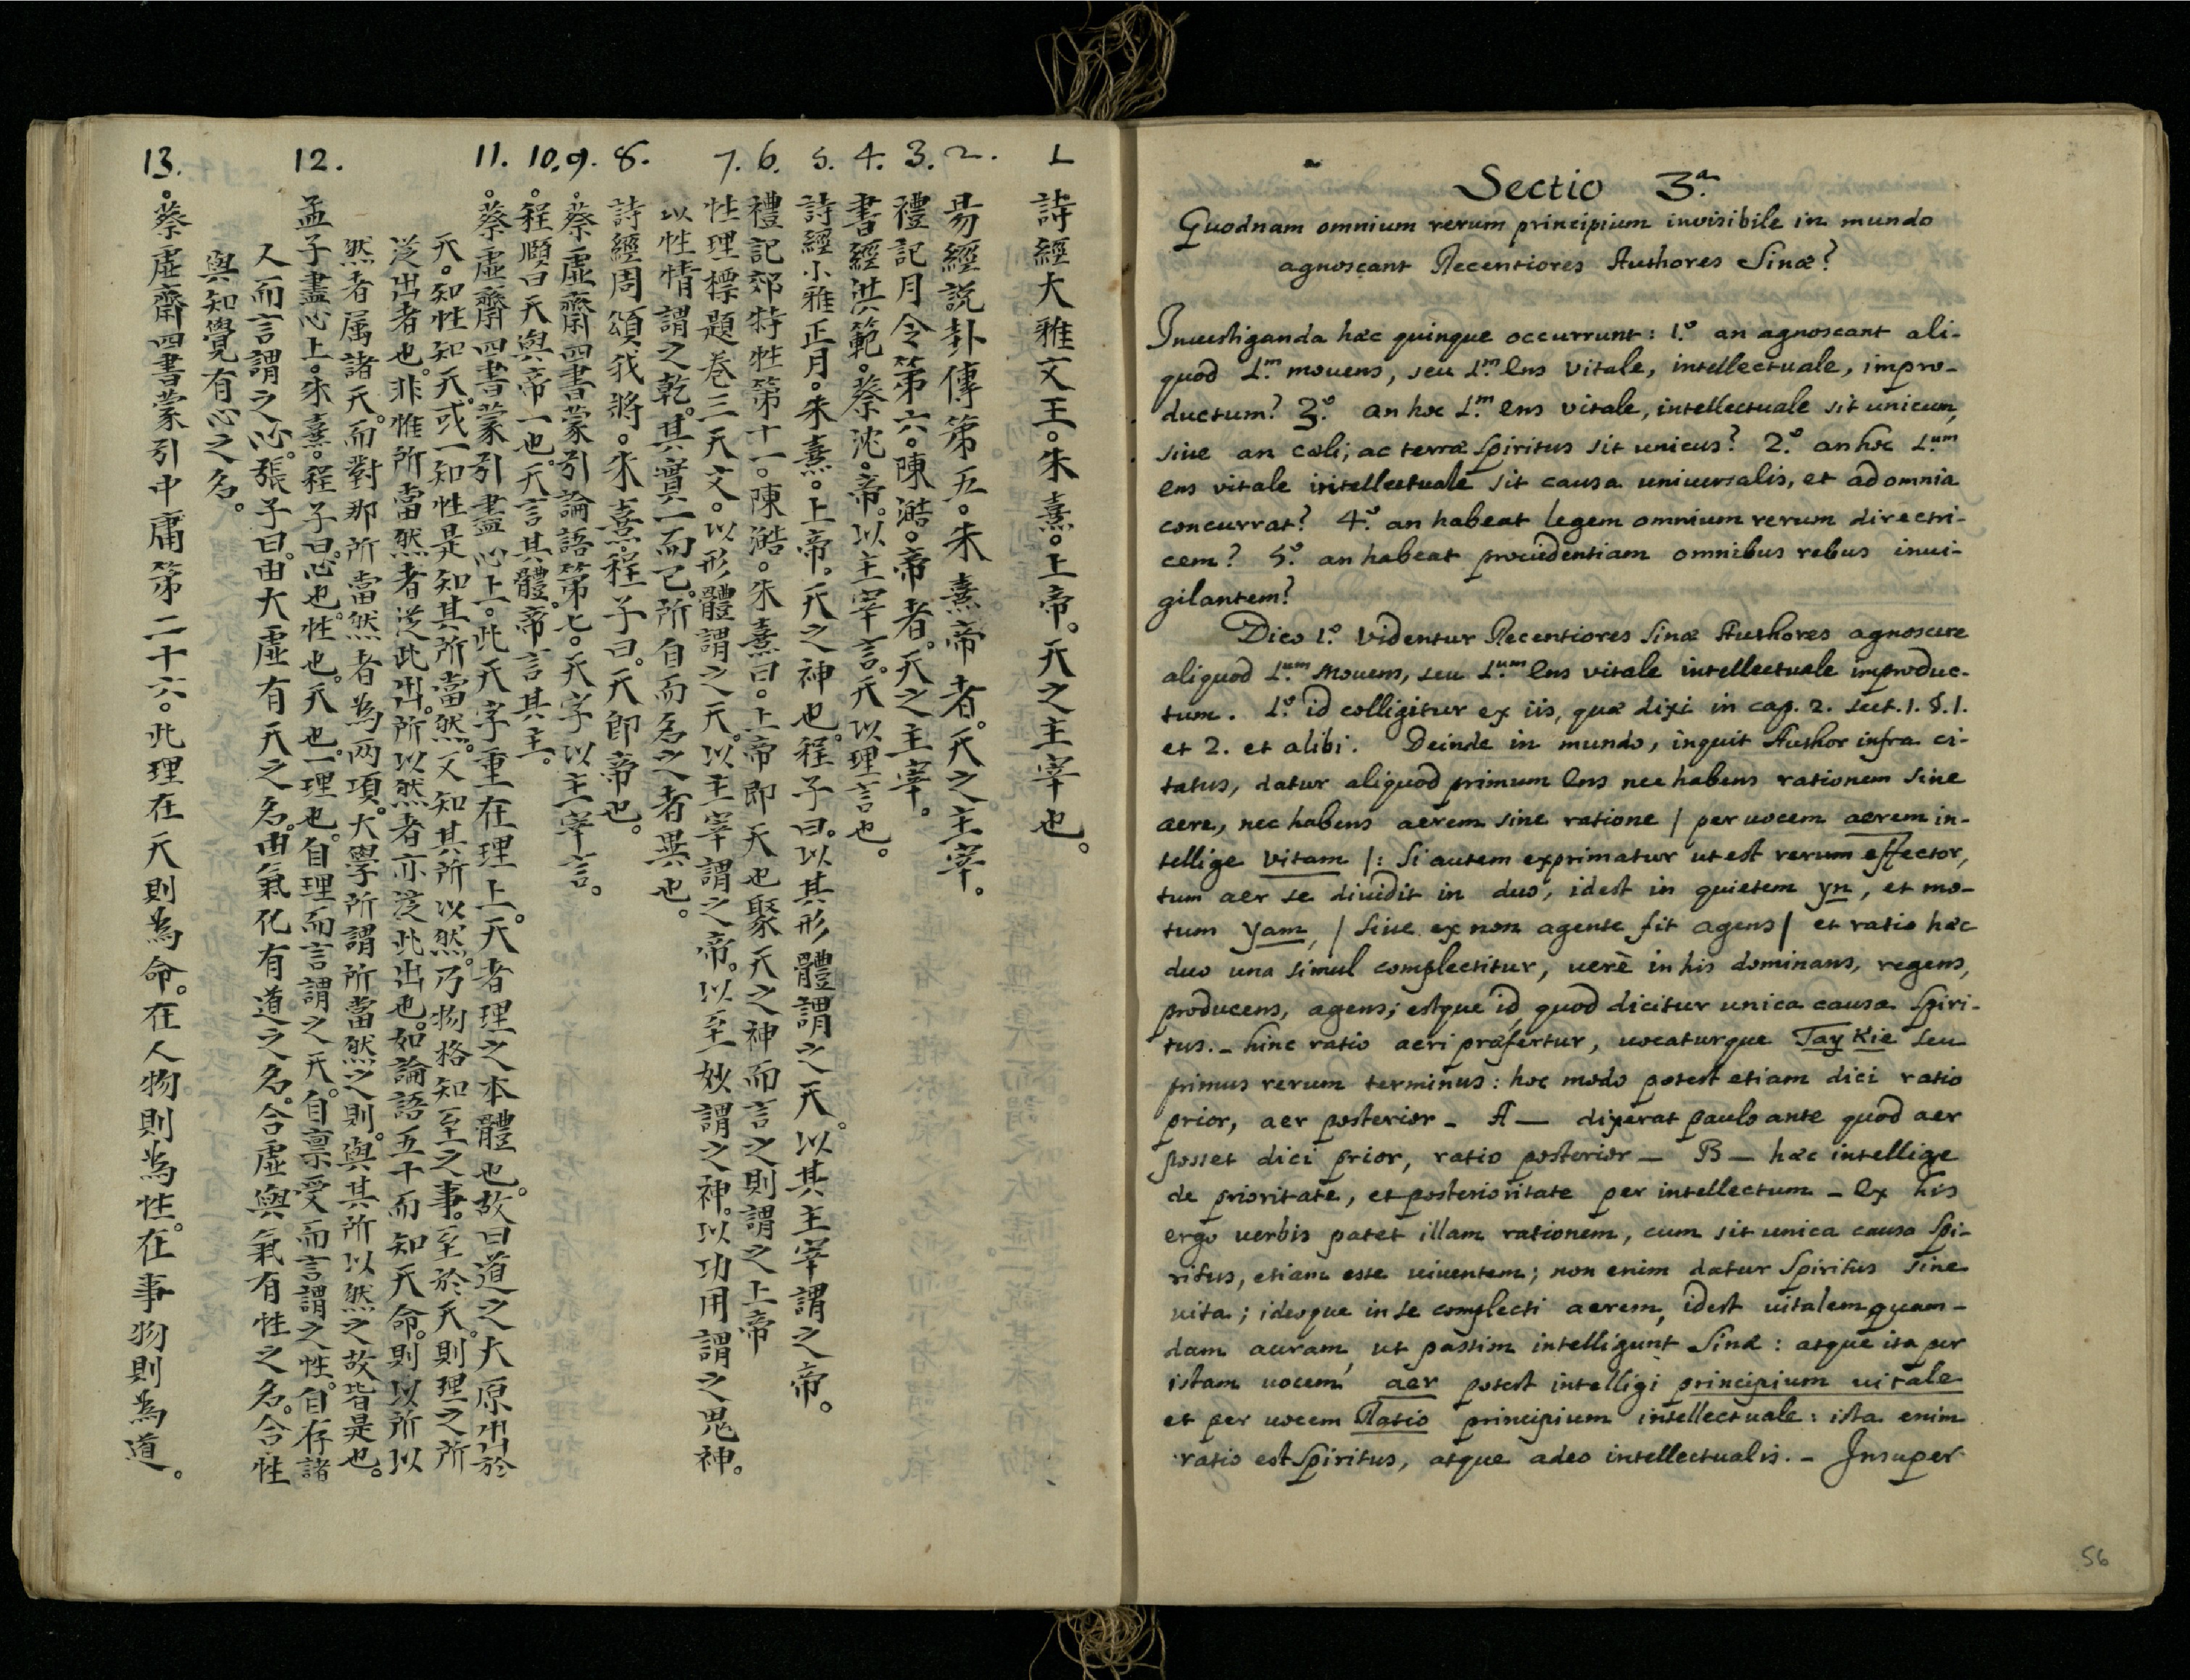 1
詩經大雅文王。朱熹。上帝。天之主宰也。
2.
易經説卦傳第五。朱熹帝者。天之主宰。
3.
禮記月令第六。陳澔。帝者。天之主宰。
4.
書經洪範。蔡沈。帝。以主宰言。天以理言也。
5.
詩經小雅正月。朱熹。上帝。天之神也。程子曰。以其形體謂之天。以其主宰謂之帝。
6.
禮記郊特牲第十一。陳澔。朱熹曰。上帝即天也聚天之神而言之則謂之上帝
7.
性理標題卷三天文。以形體謂之天。以主宰謂之帝。以至妙謂之神。以功用謂之鬼神。
以性情謂之乾。其實一而已。所自而名之者異也。
8.
詩經周頌我將。朱熹。程子曰。天即帝也。
9.
。蔡虛齋四書蒙引論語第七。天字以主宰言。
10.
。程頤曰天與帝一也。天言其體。帝言其主。
11.
。蔡虛齋四書蒙引盡心上。此天字重在理上。天者理之本體也。故曰道之大原出於
天。知性知天。或一知性是知其所當然。又知其所以然。乃物格知至之事。至於天。則理之所
從出者也。非惟所當然者從此出。所以然者亦從此出也。如論語五十而知天命。則以所以
然者属諸天。而對那所當然者為兩項。大學所謂所當然之則。與其所以然之故皆是也。
12.
孟子盡心上。朱熹。程子曰。心也。性也。天也。一理也。自理而言謂之天。自禀受而言謂之性。自存諸
人而言謂之心。張子曰。由大虛有天之名。由氣化有道之名。合虛與氣有性之名。合性
與知覺有心之名。
13.
。蔡虛齋四書蒙引中庸第二十六。此理在天則為命。在人物則為性。在事物則為道。
Sectio 3.ª
Quodnam omnium rerum principium invisibile in mundo
agnoscant Recentiores Authores Sinæ?
Inuestiganda hæc quinque occurrunt: 1.º an agnoscant ali-
quod 1.m mouens, seu 1.m Ens vitale, intellectuale, impro-
ductum? 3.º an hoc 1.m ens vitale, intellectuale sit unicum,
siue an cæli, ac terræ Spiritus sit unicus? 2.º an hoc 1.um
ens vitale intellectuale sit causa uniuersalis, et ad omnia
concurrat? 4.º an habeat legem omnium rerum directri-
cem? 5.º an habeat prouidentiam omnibus rebus inui-
gilantem?
Dico 1.º Videntur Recentiores Sinæ Authores agnoscere
aliquod 1.um Mouens, seu 1.um Ens vitale intellectuale improduc-
tum. 1.º id colligitur ex iis, quæ dixi in cap. 2. sect. 1. §. 1.
et 2. et alibi. Deinde in mundo, inquit Author infra ci-
tatus, datur aliquod primum Ens nec habens rationem sine
aere, nec habens aerem sine ratione / per uocem aerem in-
tellige vitam /: Si autem exprimatur ut est rerum effector,
tum aer se diuidit in duo, idest in quietem yn, et mo-
tum yam, / siue ex non agente fit agens / et ratio hæc
duo una simul complectitur, uerè in his dominans, regens,
producens, agens; estque id quod dicitur unica causa Spiri-
tus. - hinc ratio aeri præfertur, uocaturque Tay Kie seu
primus rerum terminus: hoc modo potest etiam dici ratio
prior, aer posterior - A - dixerat paulo ante quod aer
posset dici prior, ratio posterior - B - hæc intellige
de prioritate, et posterioritate per intellectum - Ex his
ergo uerbis patet illam rationem, cum sit unica causa Spi-
ritus, etiam esse uiuentem; non enim datur Spiritus sine
uita; ideoque in se complecti aerem, idest uitalem quam-
dam auram, ut passim intelligunt Sinæ: atque ita per
istam uocem aer potest intelligi principium uitale
et per uocem Ratio principium intellectuale: ista enim
ratio est Spiritus, atque adeo intellectualis. - Insuper
56